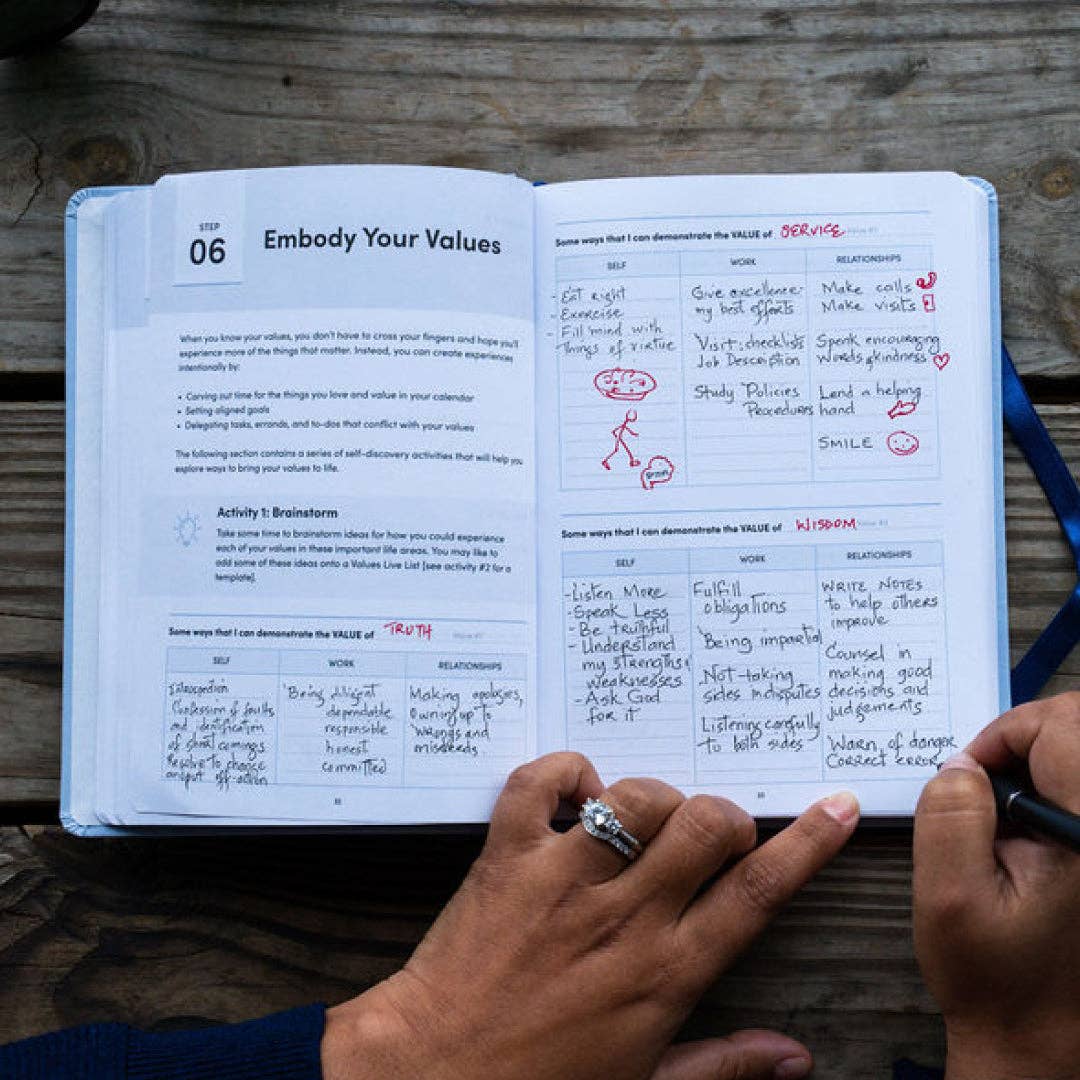 STEP
06
Embody Your Values
When you know your values, you don't have to cross your fingers and hope you'll
experience more of the things that matter. Instead, you can create experiences
intentionally by:
• Carving out time for the things you love and value in your calendar
• Setting aligned goals
• Delegating tasks, errands, and to-dos that conflict with your values
The following section contains a series of self-discovery activities that will help you
explore ways to bring your values to life.
Activity 1: Brainstorm
Take some time to brainstorm ideas for how you could experience
each of your values in these important life areas. You may like to
add some of these ideas onto a Values Live List [see activity #2 for a
template].
Some ways that I can demonstrate the VALUE of TRUTH
SELF
Introspection
Confession of faults
and identification
of short comings
Resolve to change
and put off-action
WORK
Being diligent
dependable
responsible
honest
committed
RELATIONSHIPS
Making apologies,
owning up to
wrongs and
misdeeds
Some ways that I can demonstrate the VALUE of SERVICE
SELF
- Eat right
- Exercise
- Fill mind with
things of virtue
brain
WORK
Give excellence
my best efforts
Visit: checklists
Job Description
Study Policies
Procedures
RELATIONSHIPS
Make calls
Make visits
Speak encouraging
words of kindness
Lend a helping
hand
SMILE
Some ways that I can demonstrate the VALUE of WISDOM
SELF
- Listen More
- Speak Less
- Be truthful
- Understand
my strengths,
weaknesses
- Ask God
for it
WORK
Fulfill
obligations
Being impartial
Not-taking
sides in disputes
Listening carefully
to both sides
RELATIONSHIPS
WRITE NOTES
to help others
improve
Counsel in
making good
decisions and
judgements
Warn of danger
Correct error